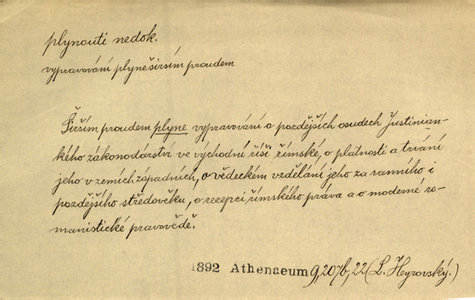 plynouti nedok.
vypravování plyne širším proudem
Širším proudem plyne vypravování o pozdějších osudech Justinian-
kého zákonodárství ve východní říši římské, o platnosti a trvání
jeho v zemích západních, o vědeckém vzdělání jeho za ranního i
pozdějšího středověku, o recepci římského práva a o moderné ro-
manistické pravovědě.
1892 Athenaeum 9, 207b, 22 (L. Heyrovský.)